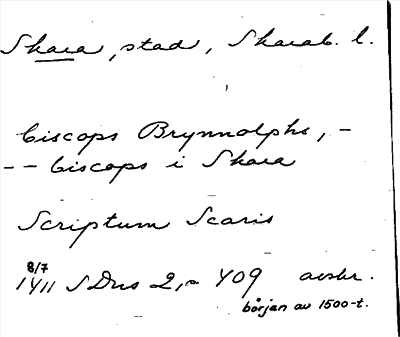 Skara, stad, Skarab. l.
biscops Brynnolphs, -
- - biscops i Skara
Scriptum Scaris
8/7
1411 SDns 2, 409 avskr.
början av 1500-t.